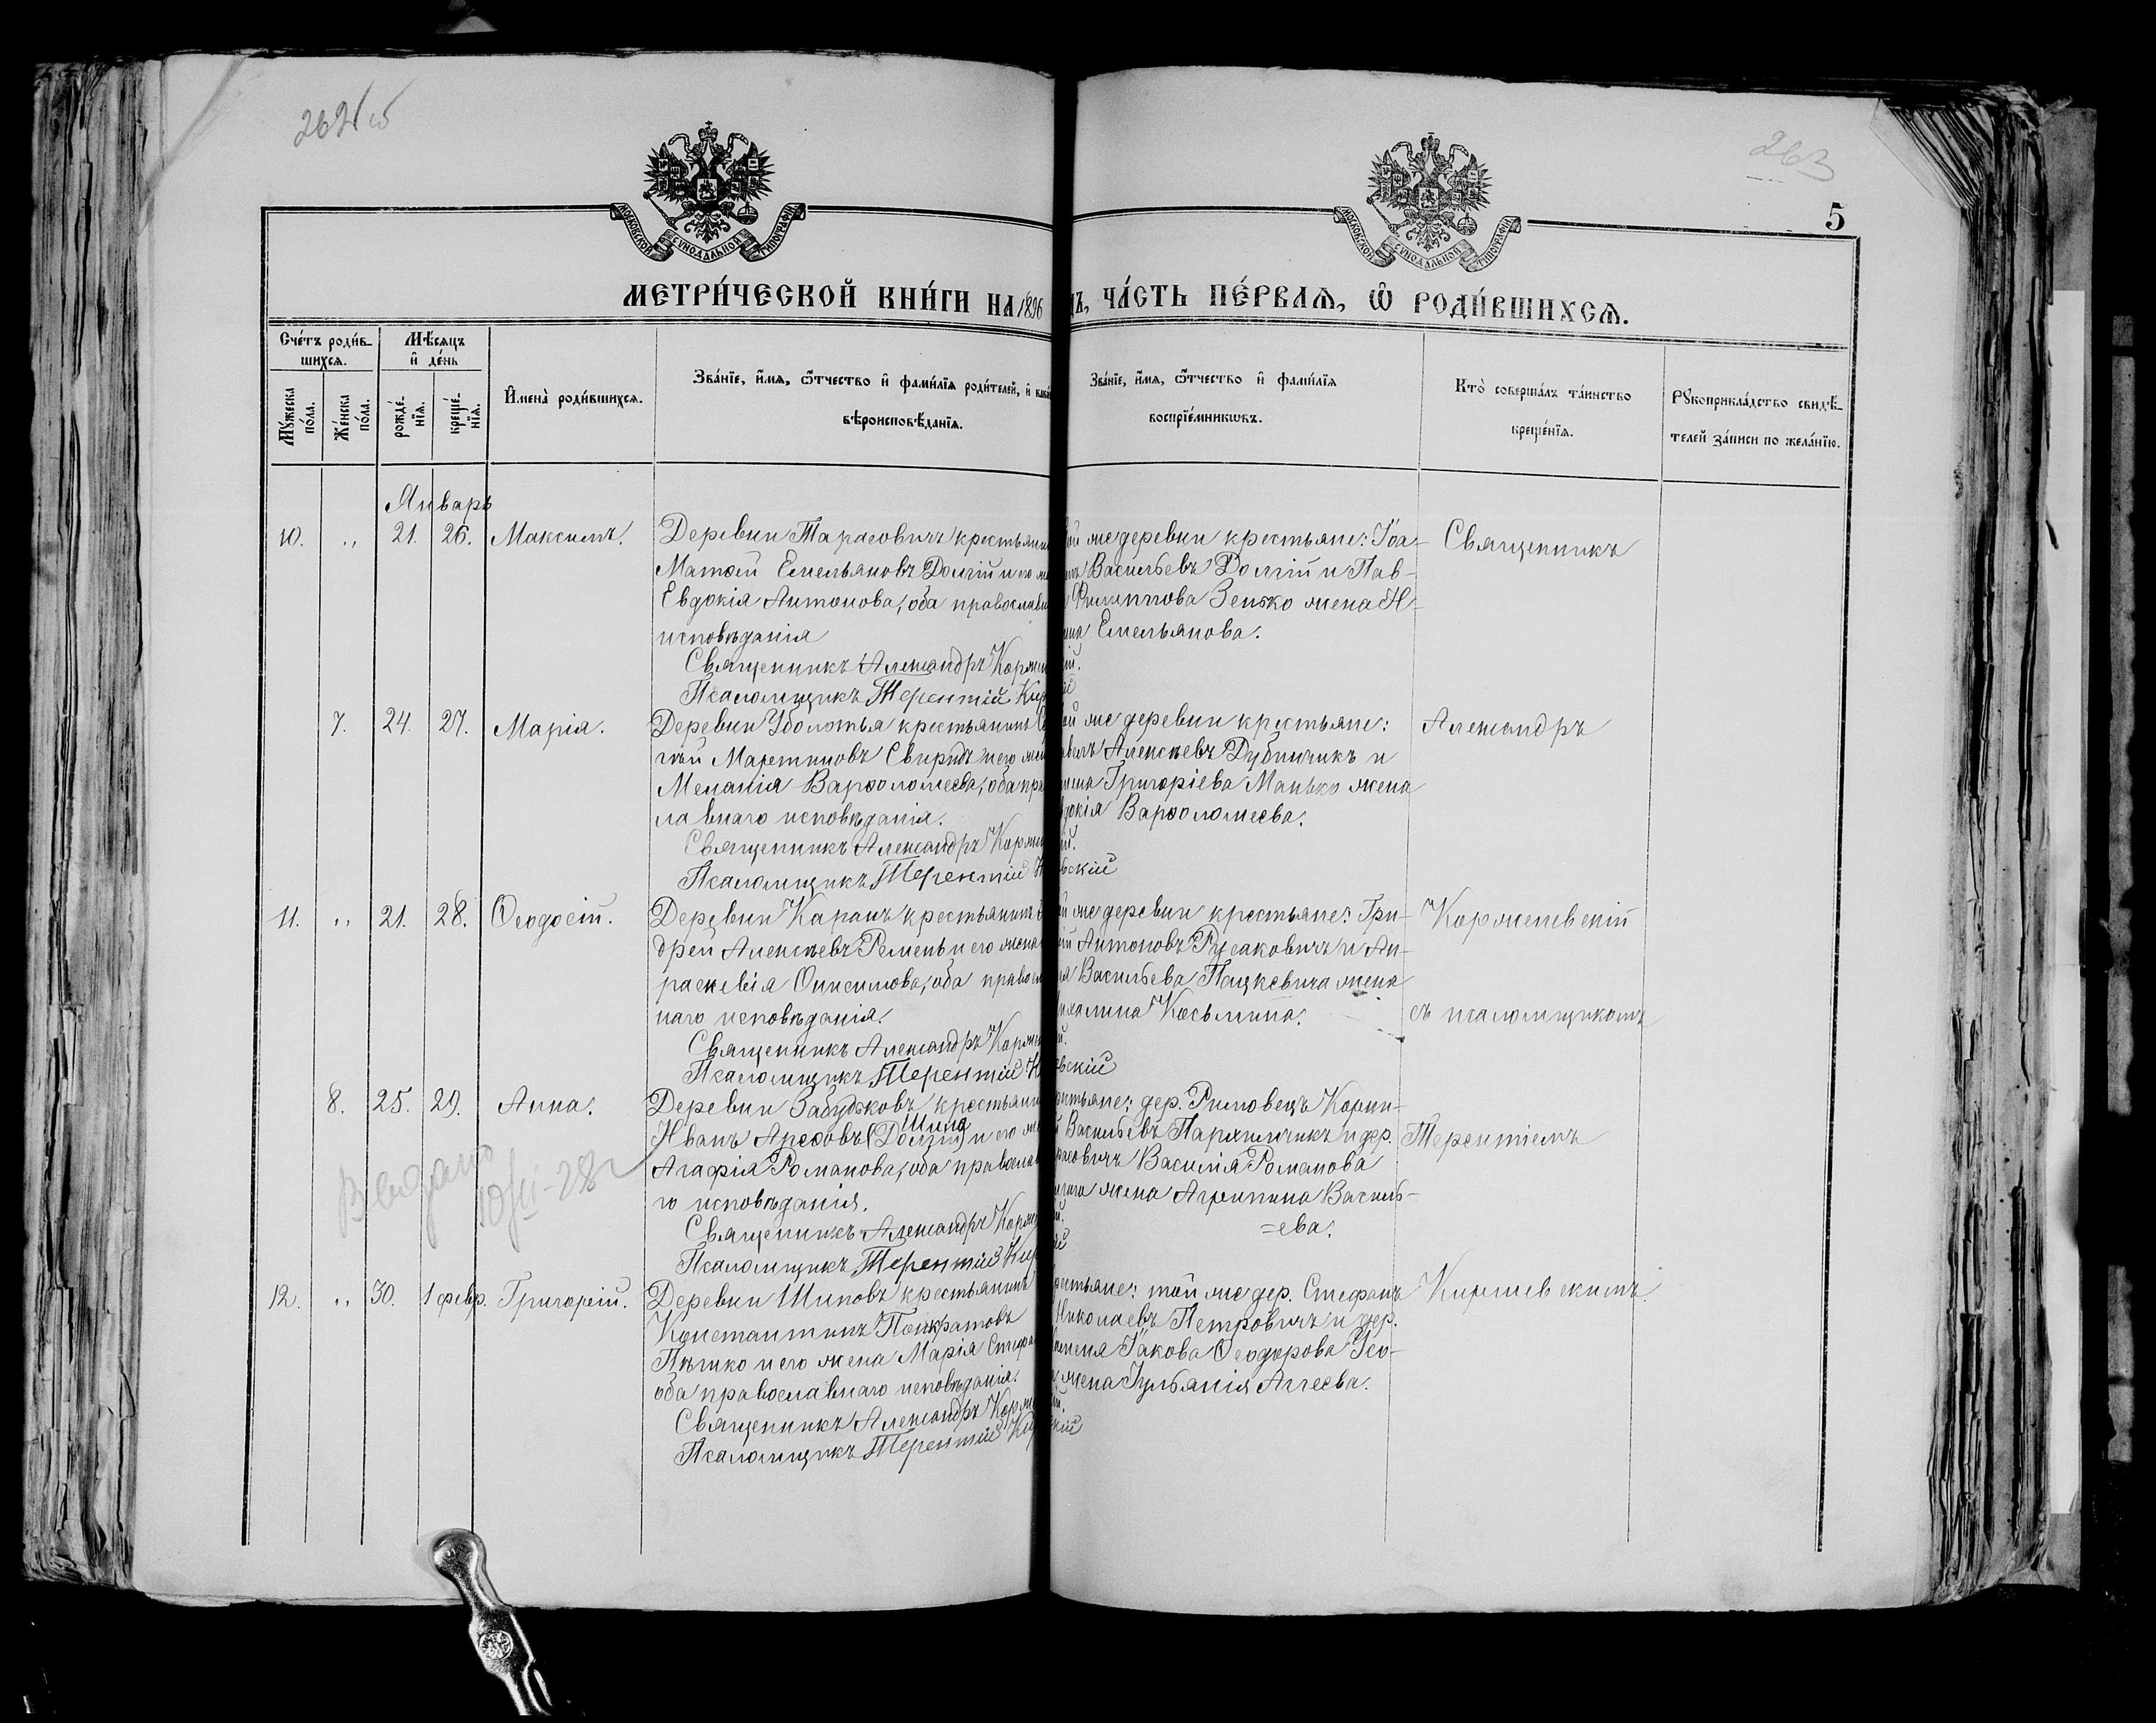 262 об
263
5
МОСКОВСКОЙ СУНОДАЛЬНОЙ ТИПОГРАФІИ
МОСКОВСКОЙ СУНОДАЛЬНОЙ ТИПОГРАФІИ
МЕТРИ́ЧЕСКОЙ КНИ́ГИ НА 1896
ДЪ, ЧА́СТЬ ПЕ́РВАѦ, Ѡ҆ РОДИ́ВШИХСѦ.
Сче́тъ роди́в-
шихсѧ.
Мꙋ́жеска по́ла.
Же́нска по́ла.
Мѣ́сѧцъ
и҆ де́нь
рожде́-нїѧ.
креще́-нїѧ.
И҆мена̀ роди́вшихсѧ.
Зва́нїе, и҆́мѧ, ѻ҆́тчество и҆ фами́лїѧ роди́телей, и҆
вѣроисповѣ́данїѧ.
Зва́нїе, и҆́мѧ, ѻ҆́тчество и҆ фами́лїѧ
воспрїе́мникѡвъ.
Кто̀ соверша́лъ та́инство
креще́нїѧ.
Рꙋкоприкла́дство свидѣ́-
телей за́писи по жела́нїю.
Январь
10. „ 21. 26. Максимъ.
Деревни Тарасовичъ крестьянин
Матөей Емельяновъ Долгій и его же
Евдокія Антонова, оба православн
исповѣданія
Священникъ Александръ Корже
Псаломщикъ Терентій Кир
ой же деревни крестьяне: Іоа-
Васильевъ Долгій и Пав-
Филиппова Зенько жена И-
Емельянова.
ій.
Священникъ
7. 24. 27. Марія.
Деревни Уболотья крестьянинъ
гѣй Мартиновъ Свиридъ и его же
Меланія Варѳоломеева, оба пра
лавнаго исповѣданія.
Священникъ Александръ Корже
Псаломщикъ Терентій К
ой же деревни крестьяне:
Алексѣевъ Дубинчикъ и
Григоріева Манько жена
докія Варѳоломеева.
ій.
вскій
Александръ
11. „ 21. 28. Ѳеодосій.
Деревни Каранъ крестьянинъ
дрей Алексѣевъ Ремень и его жена
раскевія Онисимова, оба правосл
наго исповѣданія.
Священникъ Александръ Корже
Псаломщикъ Терентій К
ой же деревни крестьяне: Гри-
ій Антоновъ Русаковичъ и Ан-
Васильева Пацкевича жена
Косьмина.
ій.
вскій
Коржелевскій
съ псаломщикомъ
8. 25. 29. Анна.
Деревни Забудьковъ крестьянин
Шина
Иванъ Ареѳовъ (Долгій) и его же
Агафія Романова, оба православ
го исповѣданія.
Священникъ Александръ Корже
Псаломщикъ Терентій Кир
рестьяне: дер. Римовецъ Корни-
й Васильевъ Пархимчикъ и дер.
расовичъ Василія Романова
жена Агриппина Василь-
=ева.
ій.
Терентіемъ
Выдано
10/II-28г
12. „ 30. 1 февр. Григорій.
Деревни Шиповъ крестьянинъ
Константинъ Панкратовъ
Пѣшко и его жена Марія Стефан
оба православнаго исповѣданія.
Священникъ Александръ Корже
Псаломщикъ Терентій Кир
рестьяне: той же дер. Стефанъ
Николаевъ Петровичъ и дер.
Іакова Ѳеодорова Усо-
жена Іульянія Аггеева.
ій.
скій
Киршевскимъ.